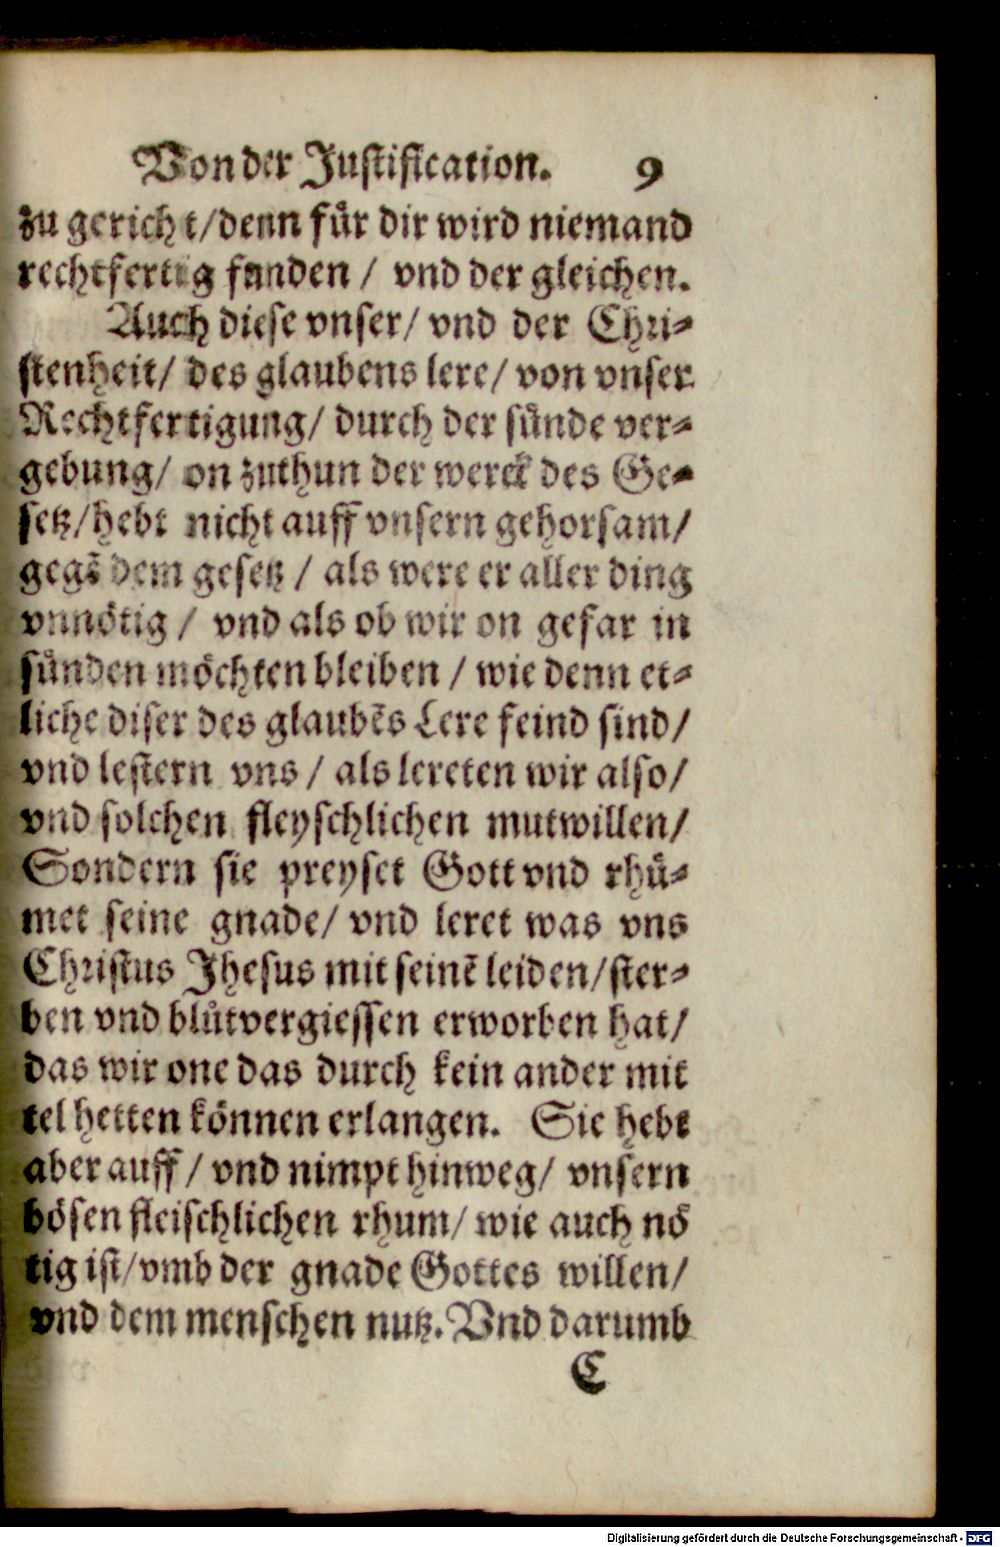 Von der Justification. 9
zu gericht/denn für dir wird niemand
rechtfertig funden / vnd der gleichen.
Auch diese vnser/ vnd der Chri-
stenheit/ des glaubens lere/ von vnser
Rechtfertigung/ durch der sünde ver-
gebung/ on zuthun der werck des Ge-
setz/hebt nicht auff vnsern gehorsam/
gegē dem gesetz / als were er aller ding
vnnötig / vnd als ob wir on gefar in
sünden möchten bleiben / wie denn et-
liche diser des glaubēs Lere feind sind/
vnd lestern vns / als lereten wir also/
vnd solchen fleyschlichen mutwillen/
Sondern sie preyset Gott vnd rhü-
met seine gnade/ vnd leret was vns
Christus Jhesus mit seinē leiden/ster-
ben vnd blůtvergiessen erworben hat/
das wir one das durch kein ander mit
tel hetten können erlangen. Sie hebt
aber auff / vnd nimpt hinweg/ vnsern
bösen fleischlichen rhum/ wie auch nö
tig ist/vmb der gnade Gottes willen/
vnd dem menschen nutz. Vnd darumb
C
Digitalisierung gefördert durch die Deutsche Forschungsgemeinschaft - DFG